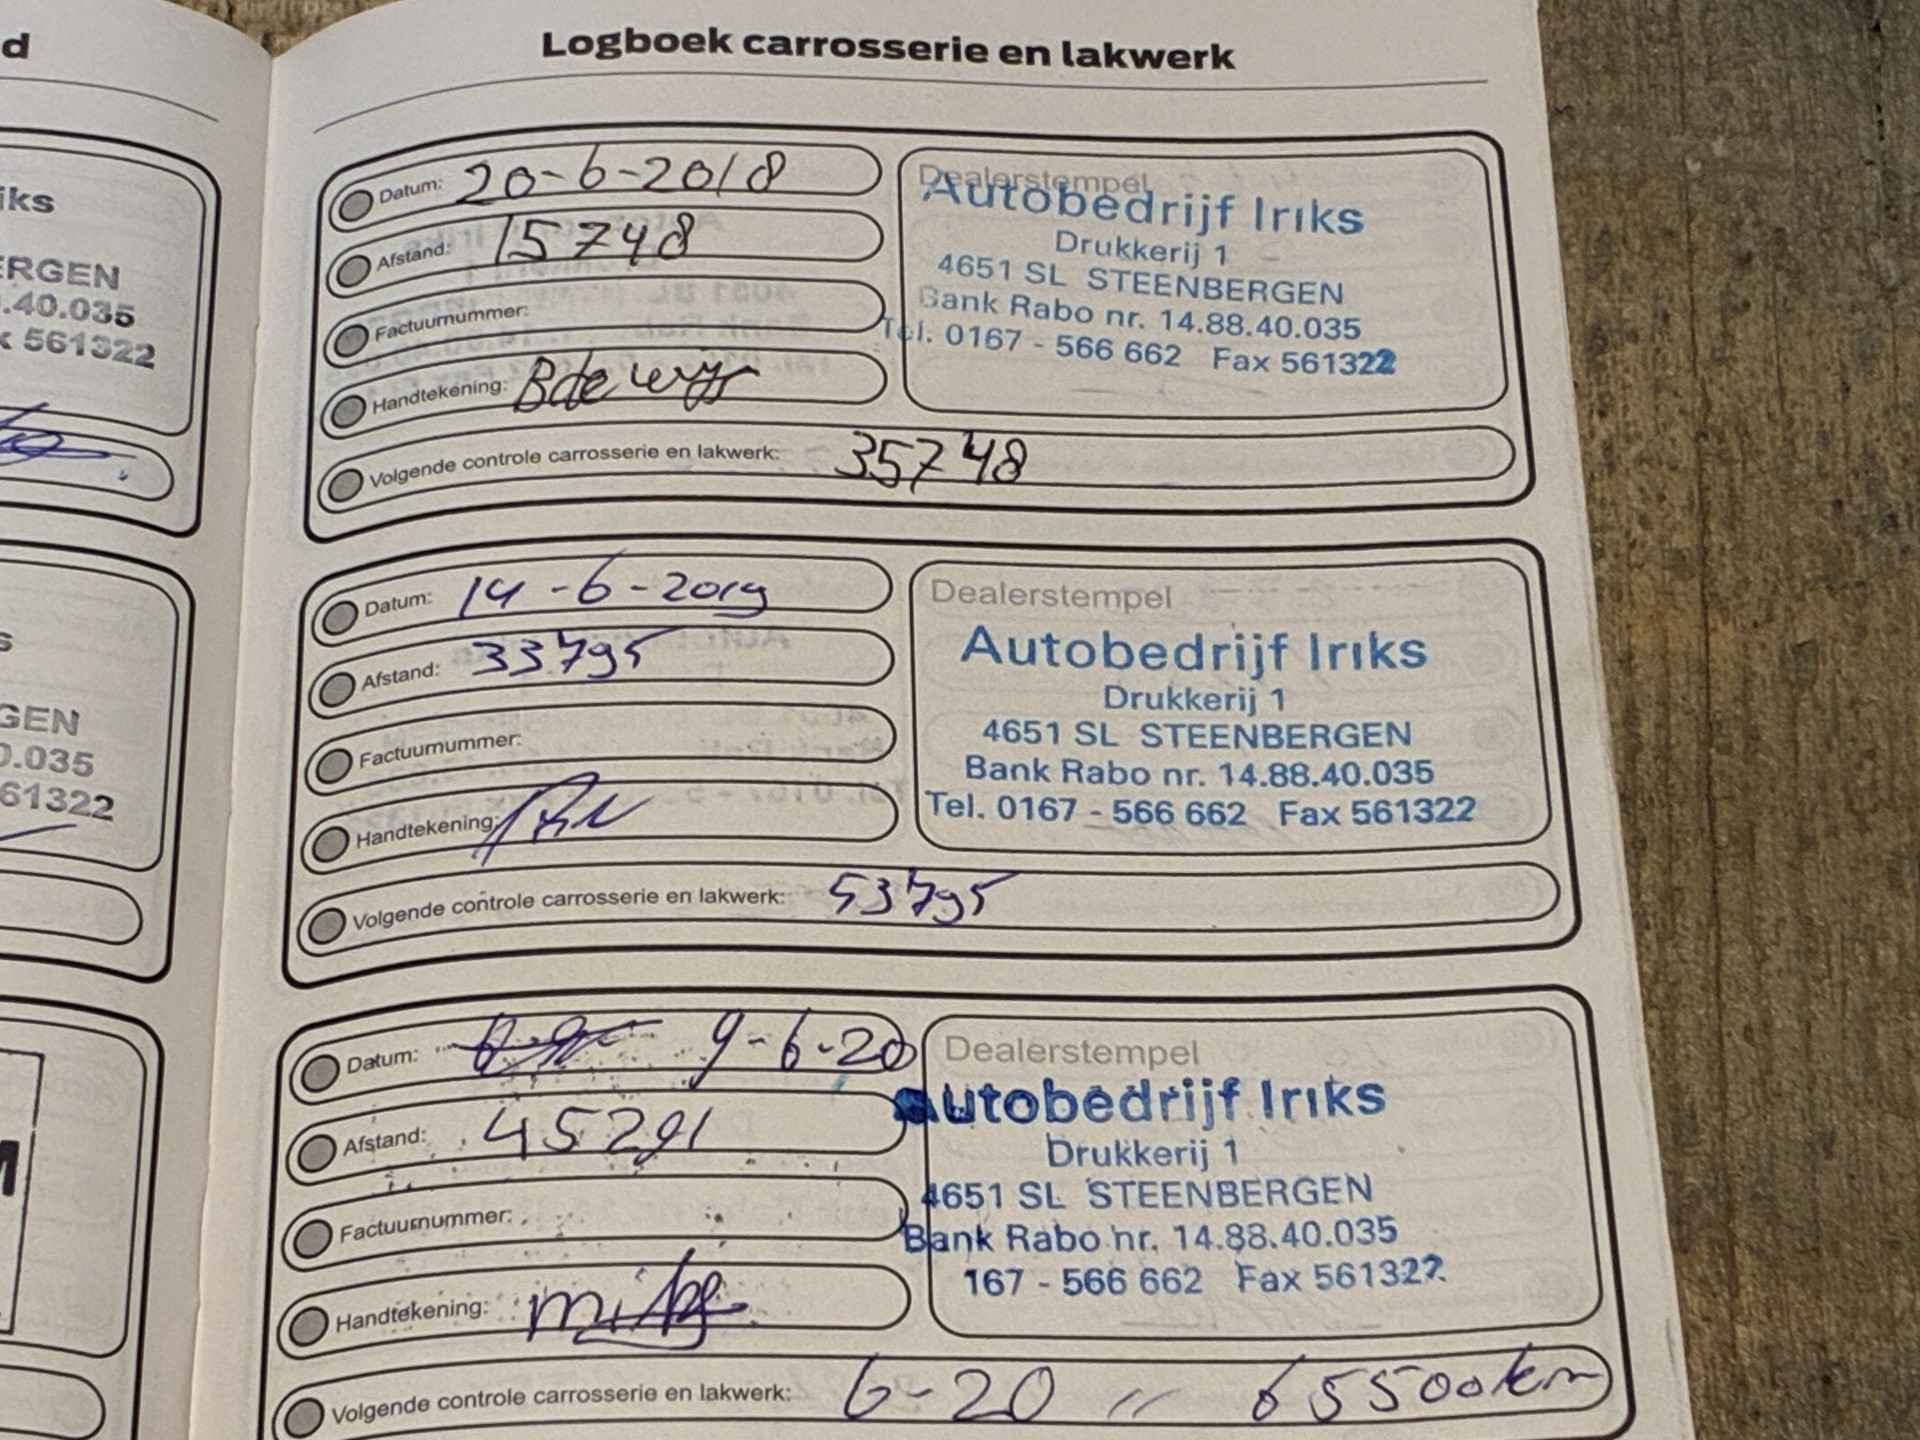 d
Logboek carrosserie en lakwerk
iks
ERGEN
.40.035
x 561322
Datum: 20-6-2018
Afstand: 15748
Factuurnummer:
Handtekening:
Volgende controle carrosserie en lakwerk: 35748
Dealerstempel
Autobedrijf Iriks
Drukkerij 1
4651 SL STEENBERGEN
Bank Rabo nr. 14.88.40.035
Tel. 0167 - 566 662 Fax 561322
s
GEN
0.035
61322
Datum: 14-6-2019
Afstand: 33795
Factuurnummer:
Handtekening:
Volgende controle carrosserie en lakwerk: 53795
Dealerstempel
Autobedrijf Iriks
Drukkerij 1
4651 SL STEENBERGEN
Bank Rabo nr. 14.88.40.035
Tel. 0167 - 566 662 Fax 561322
M
Datum: 9-6-20
Afstand: 45291
Factuurnummer:
Handtekening:
Volgende controle carrosserie en lakwerk: 6-20 // 65500km
Dealerstempel
autobedrijf Iriks
Drukkerij 1
4651 SL STEENBERGEN
Bank Rabo nr. 14.88.40.035
167 - 566 662 Fax 561322